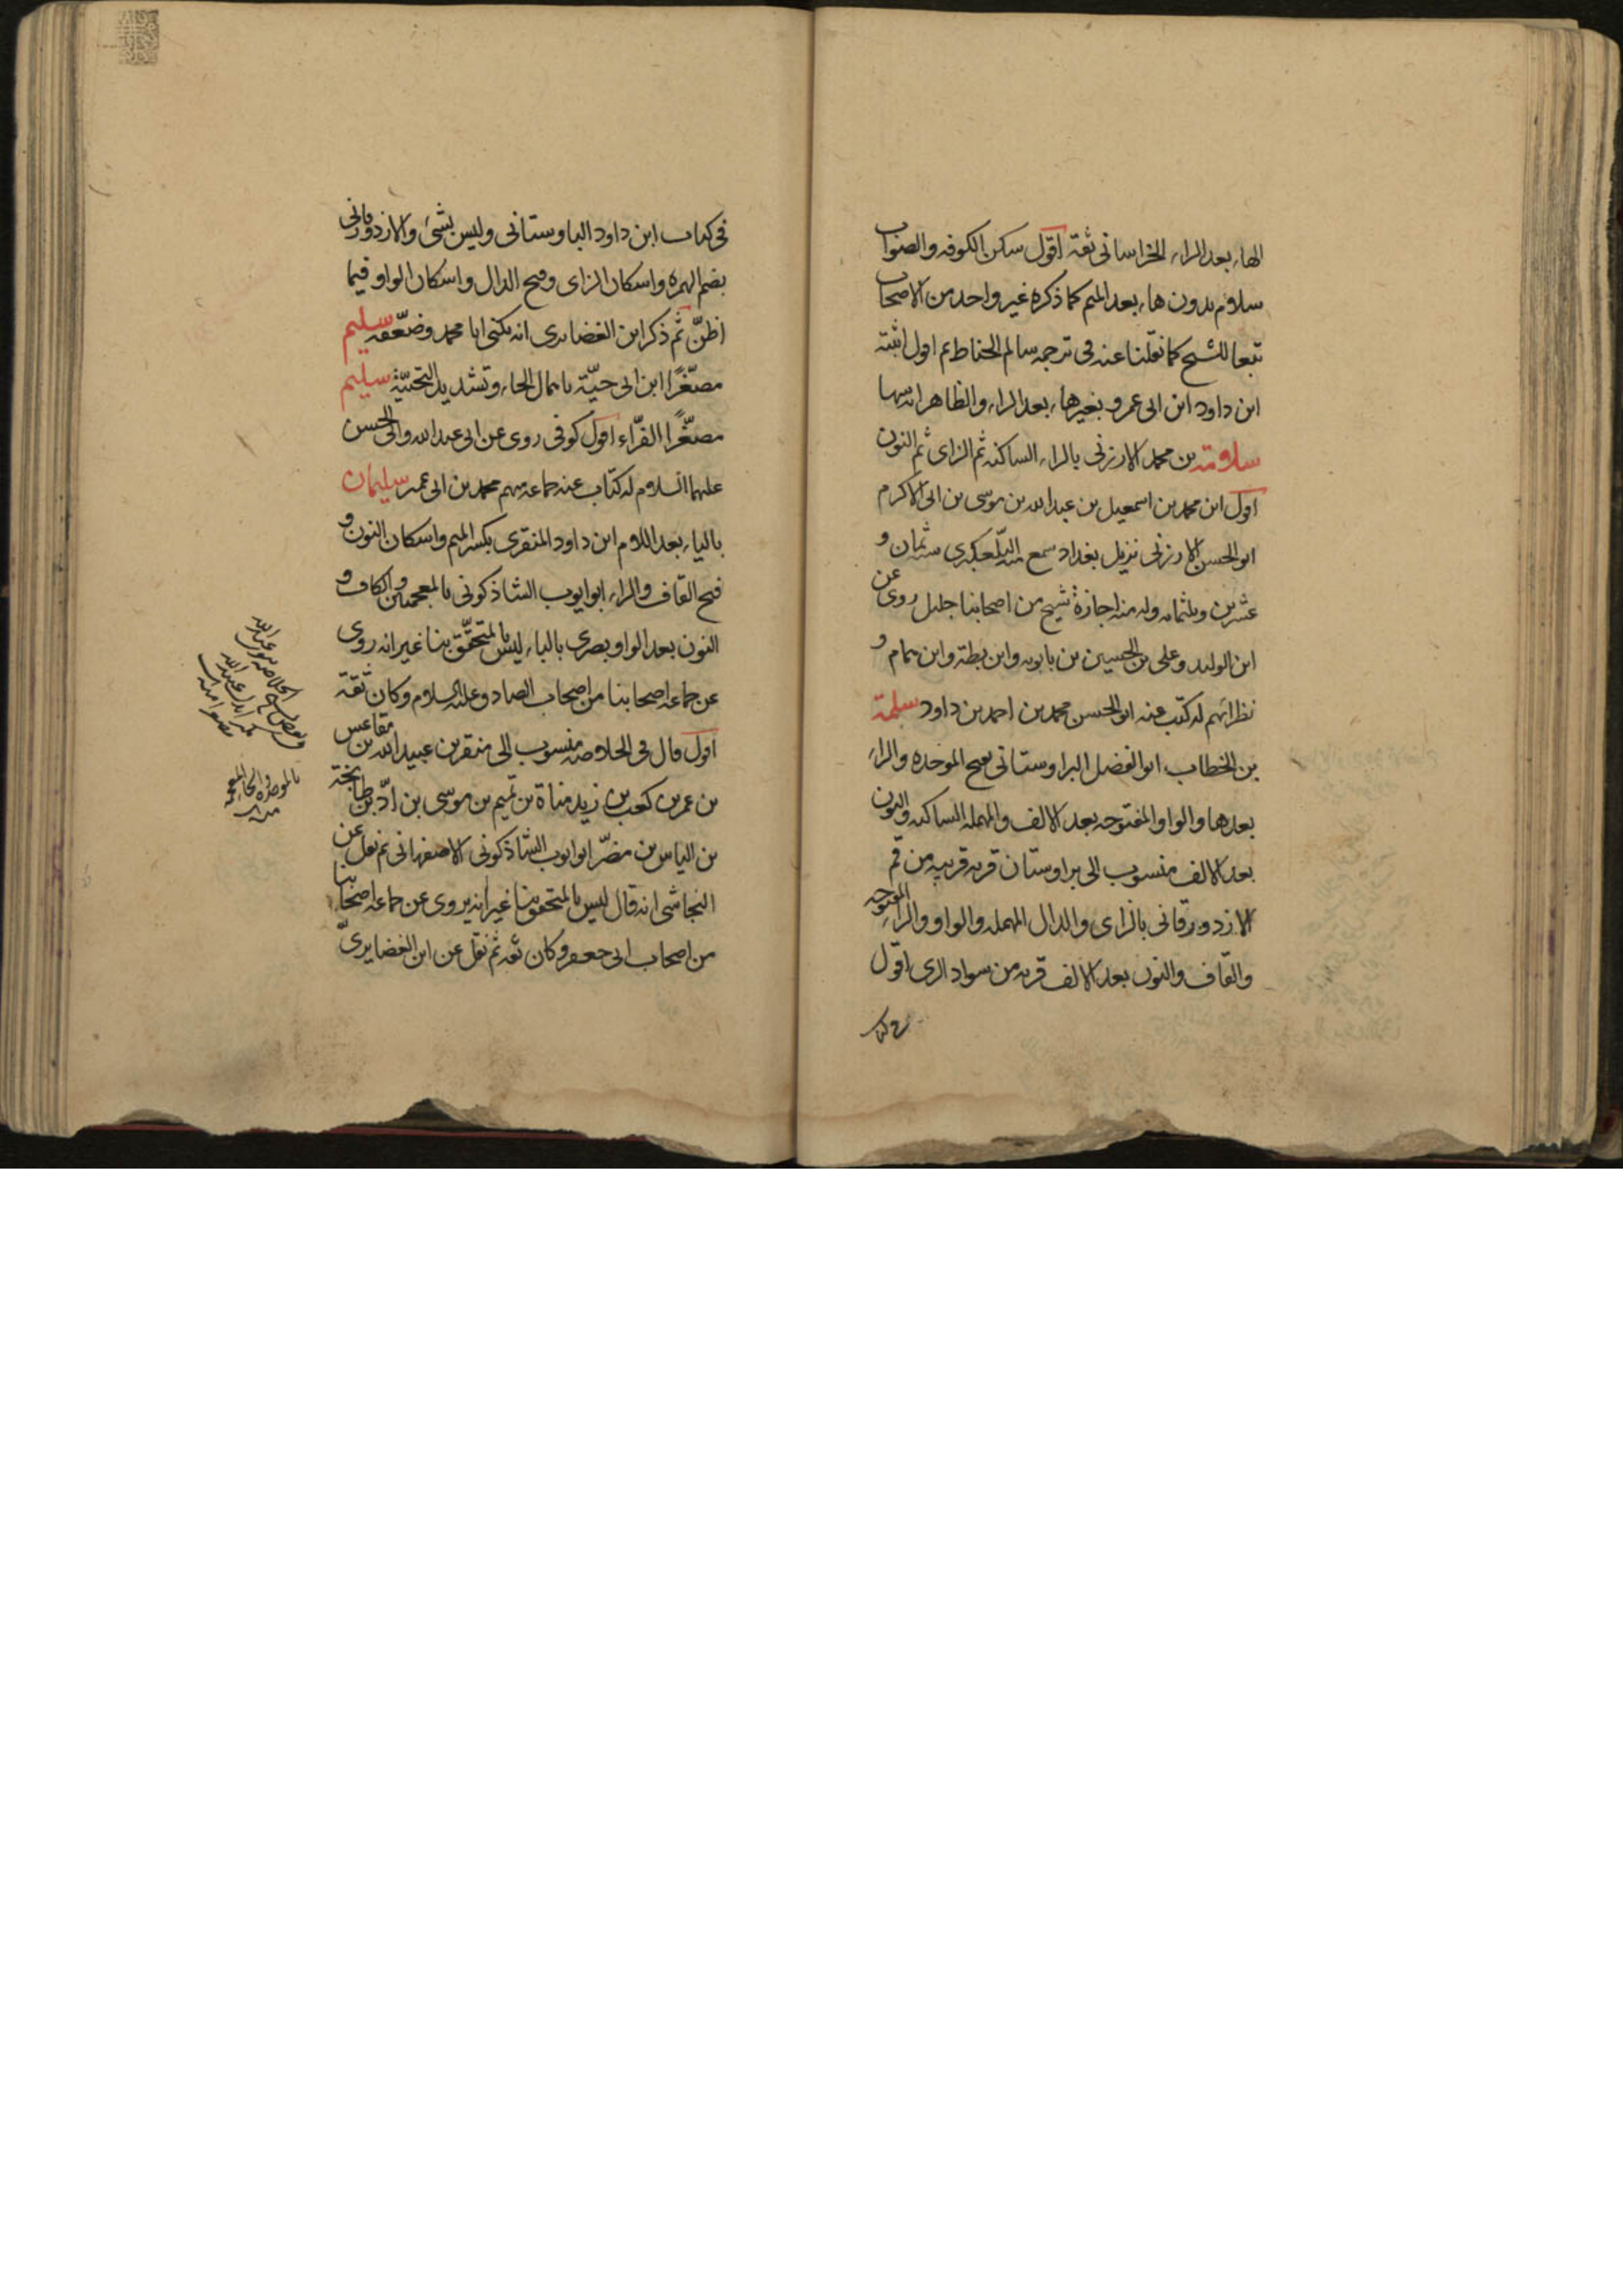 الهاء بعد الراء الخراسانى ثقة اقول سكن الكوفه والصواب
سلام بدون هاء بعد الميم كما ذكره غير واحد من الاصحاب
تبعا للشيخ كما نقلنا عنه فى ترجمه سالم الحناط ثم اقول اثبته
ابن داود ابن ابى عمرو بغيرهاء بعد الراء والظاهر انه سها
سلامة بن محمد الارزنى بالراء الساكنه ثم الزاى ثم النون
اقول ابن محمد بن اسمعيل بن عبد الله بن موسى بن ابى الاكرم
ابو الحسن الارزنى نزيل بغداد سمع منه التلعكبرى سنه ثمان و
عشرين وثلثمائه وله منه اجازة شيخ من اصحابنا جليل روى عن
ابن الوليد وعلى بن الحسين بن بابويه وابن بطة وابن همام و
نظرائهم له كتب عنه ابو الحسن محمد بن احمد بن داود سلمة
بن الخطاب ابو الفضل البراوستانى بفتح الموحده والراء
بعدها والواو المفتوحه بعد الالف والمهمله الساكنه والنون
بعد الالف منسوب الى براوستان قريه قريبه من قم
الازدورقانى بالزاى والدال المهمله والواو والراء المفتوحه
والقاف والنون بعد الالف قريه من سواد الرى اقول
فى كتاب
فى كتاب ابن داود الباوستانى وليس بشئ والازدورقانى
بضم الهمزه واسكان الزاى وفتح الدال واسكان الواو فيما
اظنّ ثم ذكر ابن الغضايرى انه يكنى ابا محمد وضعّفه سليم
مصغّرًا ابن ابى حيّة باهمال الحاء وتشديد التحتيّة سليم
مصغّرًا الفرّاء اقول كوفى روى عن ابى عبد الله وابى الحسن
عليهما السلام له كتاب عنه جماعه منهم محمد بن ابى عمير سليمان
بالياء بعد اللام ابن داود المنقرى بكسر الميم واسكان النون و
فتح القاف والراء ابو ايوب الشاذكونى بالمعجمتين والكاف و
النون بعد الواو بصرى بالباء ليس بالمتحقّق بنا غير انه روى
عن جماعه اصحابنا من اصحاب الصادق عليه السلام وكان ثقة
اقول قال فى الخلاصه منسوب الى منقر بن عبيد الله بن مقاعس
بن عمر بن كعب بن زيد مناة بن تميم بن موسى بن ادّ بن طابخة
بن الياس بن مضر ابو ايوب الشاذكونى الاصفهانى ثم نقل عن
النجاشى انه قال ليس بالمتحقق بنا غير انه يروى عن جماعه اصحابنا
من اصحاب ابى جعفر وكان ثقه ثم نقل عن ابن الغضايرىّ
وبعض نسخ الخلاصه عبد الله
بالموحده والخاء المعجمه
منه